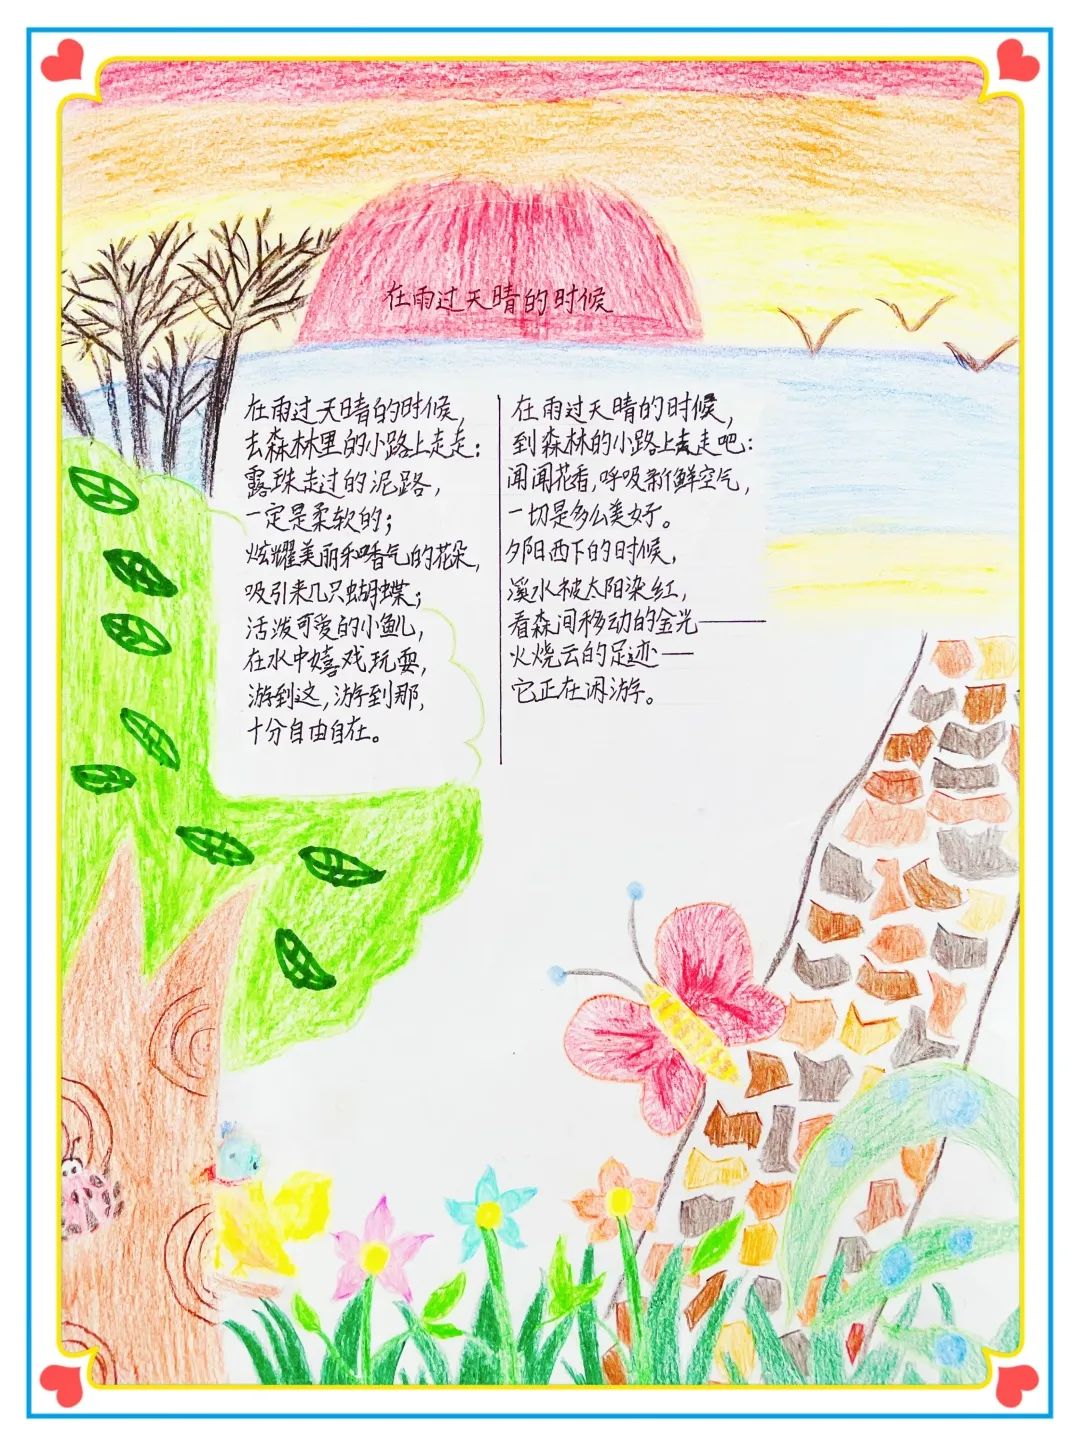 在雨过天晴的时候
在雨过天晴的时候，
去森林里的小路上走走：
露珠走过的泥路，
一定是柔软的；
炫耀美丽和香气的花朵，
吸引来几只蝴蝶；
活泼可爱的小鱼儿，
在水中嬉戏玩耍，
游到这，游到那，
十分自由自在。
在雨过天晴的时候，
到森林的小路上去走吧：
闻闻花香，呼吸新鲜空气，
一切是多么美好。
夕阳西下的时候，
溪水被太阳染红，
看森间移动的金光——
火烧云的足迹——
它正在闲游。